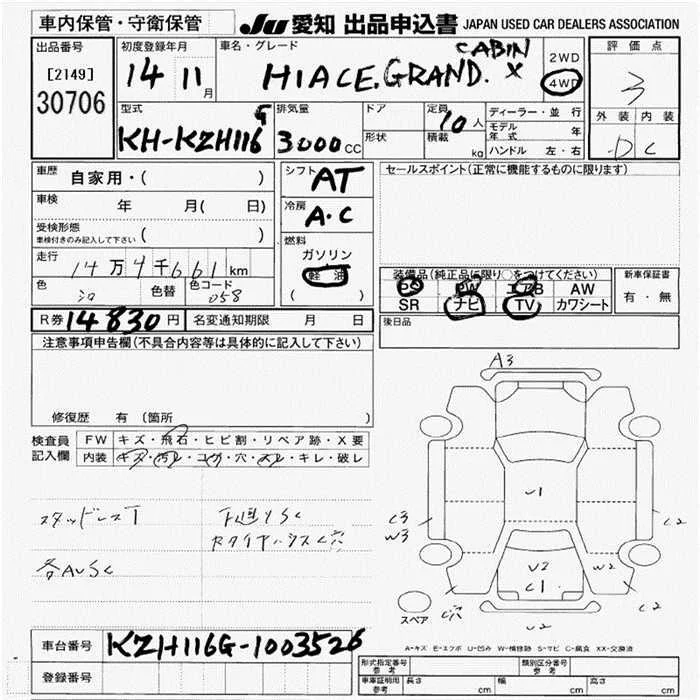 車内保管・守衛保管
JU 愛知 出品申込書 JAPAN USED CAR DEALERS ASSOCIATION
出品番号
[2149]
30706
初度登録年月
14 11 月
車名・グレード
HIACE. GRAND. CABIN X
G
2WD
4WD
評価点
3
外装 内装
D C
型式
KH-KZH116
排気量
3000 CC
ドア
形状
定員
10 人
積載
kg
ディーラー・並行
モデル年式 年
ハンドル 左・右
車歴
自家用・( )
車検
年 月( 日)
受検形態
車検付きのみ記入して下さい ( )
走行
14万4千661 km
色
シロ
色替
色コード
058
シフト
AT
冷房
A・C
燃料
ガソリン
軽油
( )
セールスポイント(正常に機能するものに限ります)
装備品(純正品に限り○をつけてください)
PS PW エアB AW
SR ナビ TV カワシート
新車保証書
有・無
後日品
R券 14830 円 名変通知期限 月 日
注意事項申告欄(不具合内容等は具体的に記入して下さい)
修復歴 有 〔箇所 〕
検査員
記入欄
FW キズ・飛石・ヒビ割・リペア跡・X要
内装 キズ・汚レ・コゲ・穴・スレ・キレ・破レ
スタッドレスT
各AUSC
下廻りSC
A3
U1
C3
W3
C2
U2
C1
W2
C2
C穴
U2
スペア
A-キズ E-エクボ U-凹み W-補修跡 S-サビ C-腐食 XX-交換済
車台番号 KZH116G-1003526
登録番号
形式指定番号
参考
類別区分番号
参考
車庫証明用
参考
長さ cm 幅 cm 高さ cm